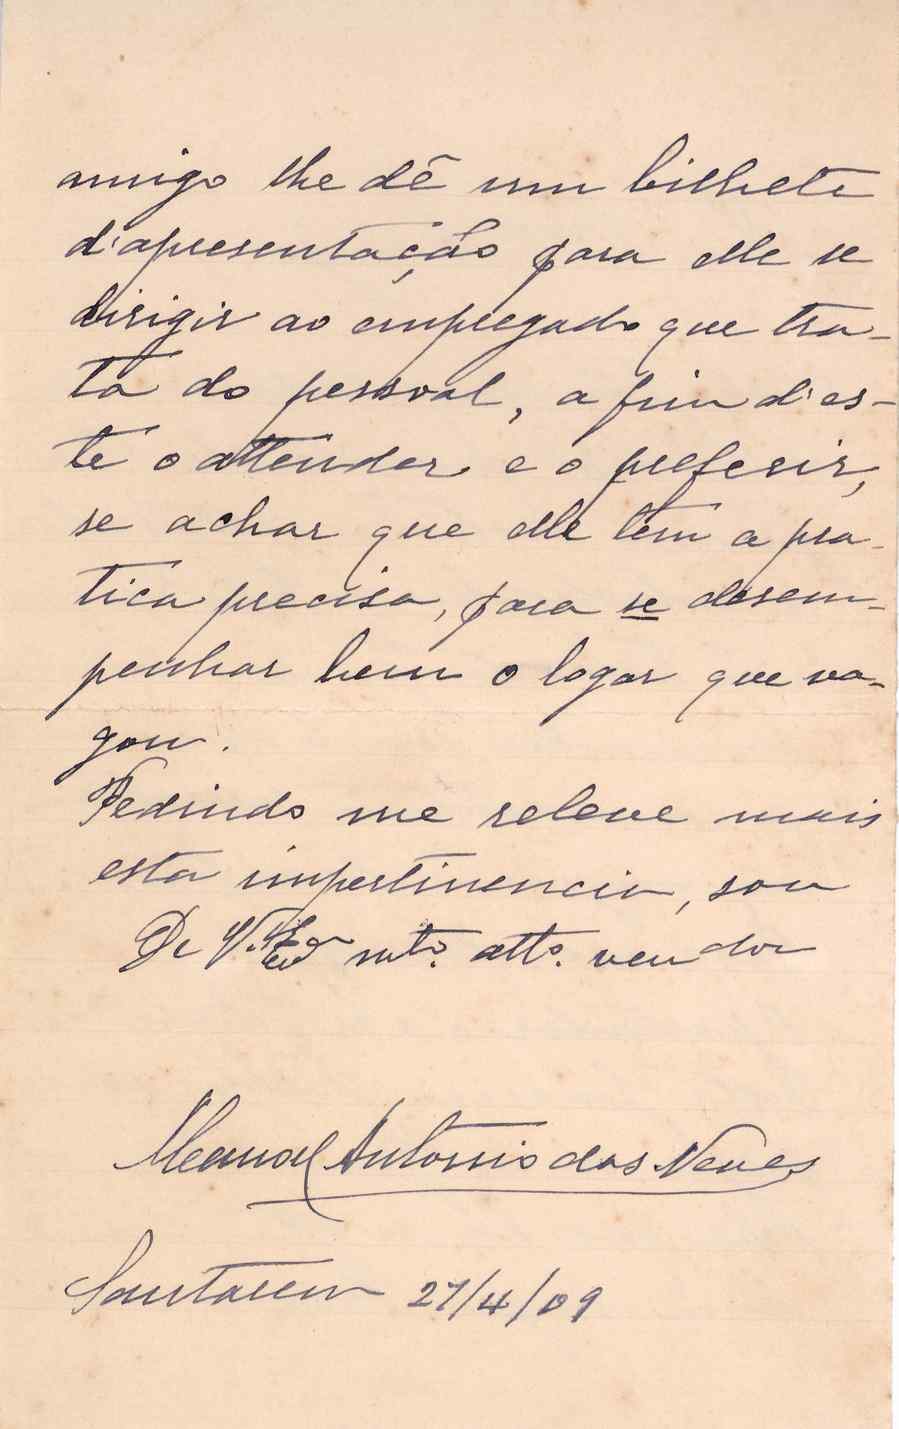 amigo lhe dê um bilhete
d'apresentação para elle se
dirigir ao empregado que tra-
ta do pessoal, a fim d'es-
te o attender e o preferir,
se achar que elle tem a pra-
tica precisa, para se desem-
penhar bem o logar que va-
gou.
Pedindo me releve mais
esta impertinencia, sou
De V. Exª mtº. attº. vendor
Manoel Antonio das Neves
Santarem 27/4/09